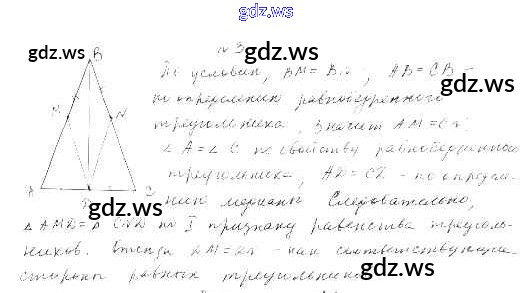 gdz.ws
№ 3
B
По условию, BM = BN; AB = CB -
по определению равнобедренного
треугольника, значит AM = CN;
∠A = ∠C по свойству равнобедренного
треугольника, AD = CD - по опреде-
нию медианы. Следовательно,
△AMD = △CND по I признаку равенства треуголь-
ников. Отсюда DM = DN - как соответствующие
стороны равных треугольников
gdz.ws
gdz.ws
gdz.ws
gdz.ws
gdz.ws
N
A
D